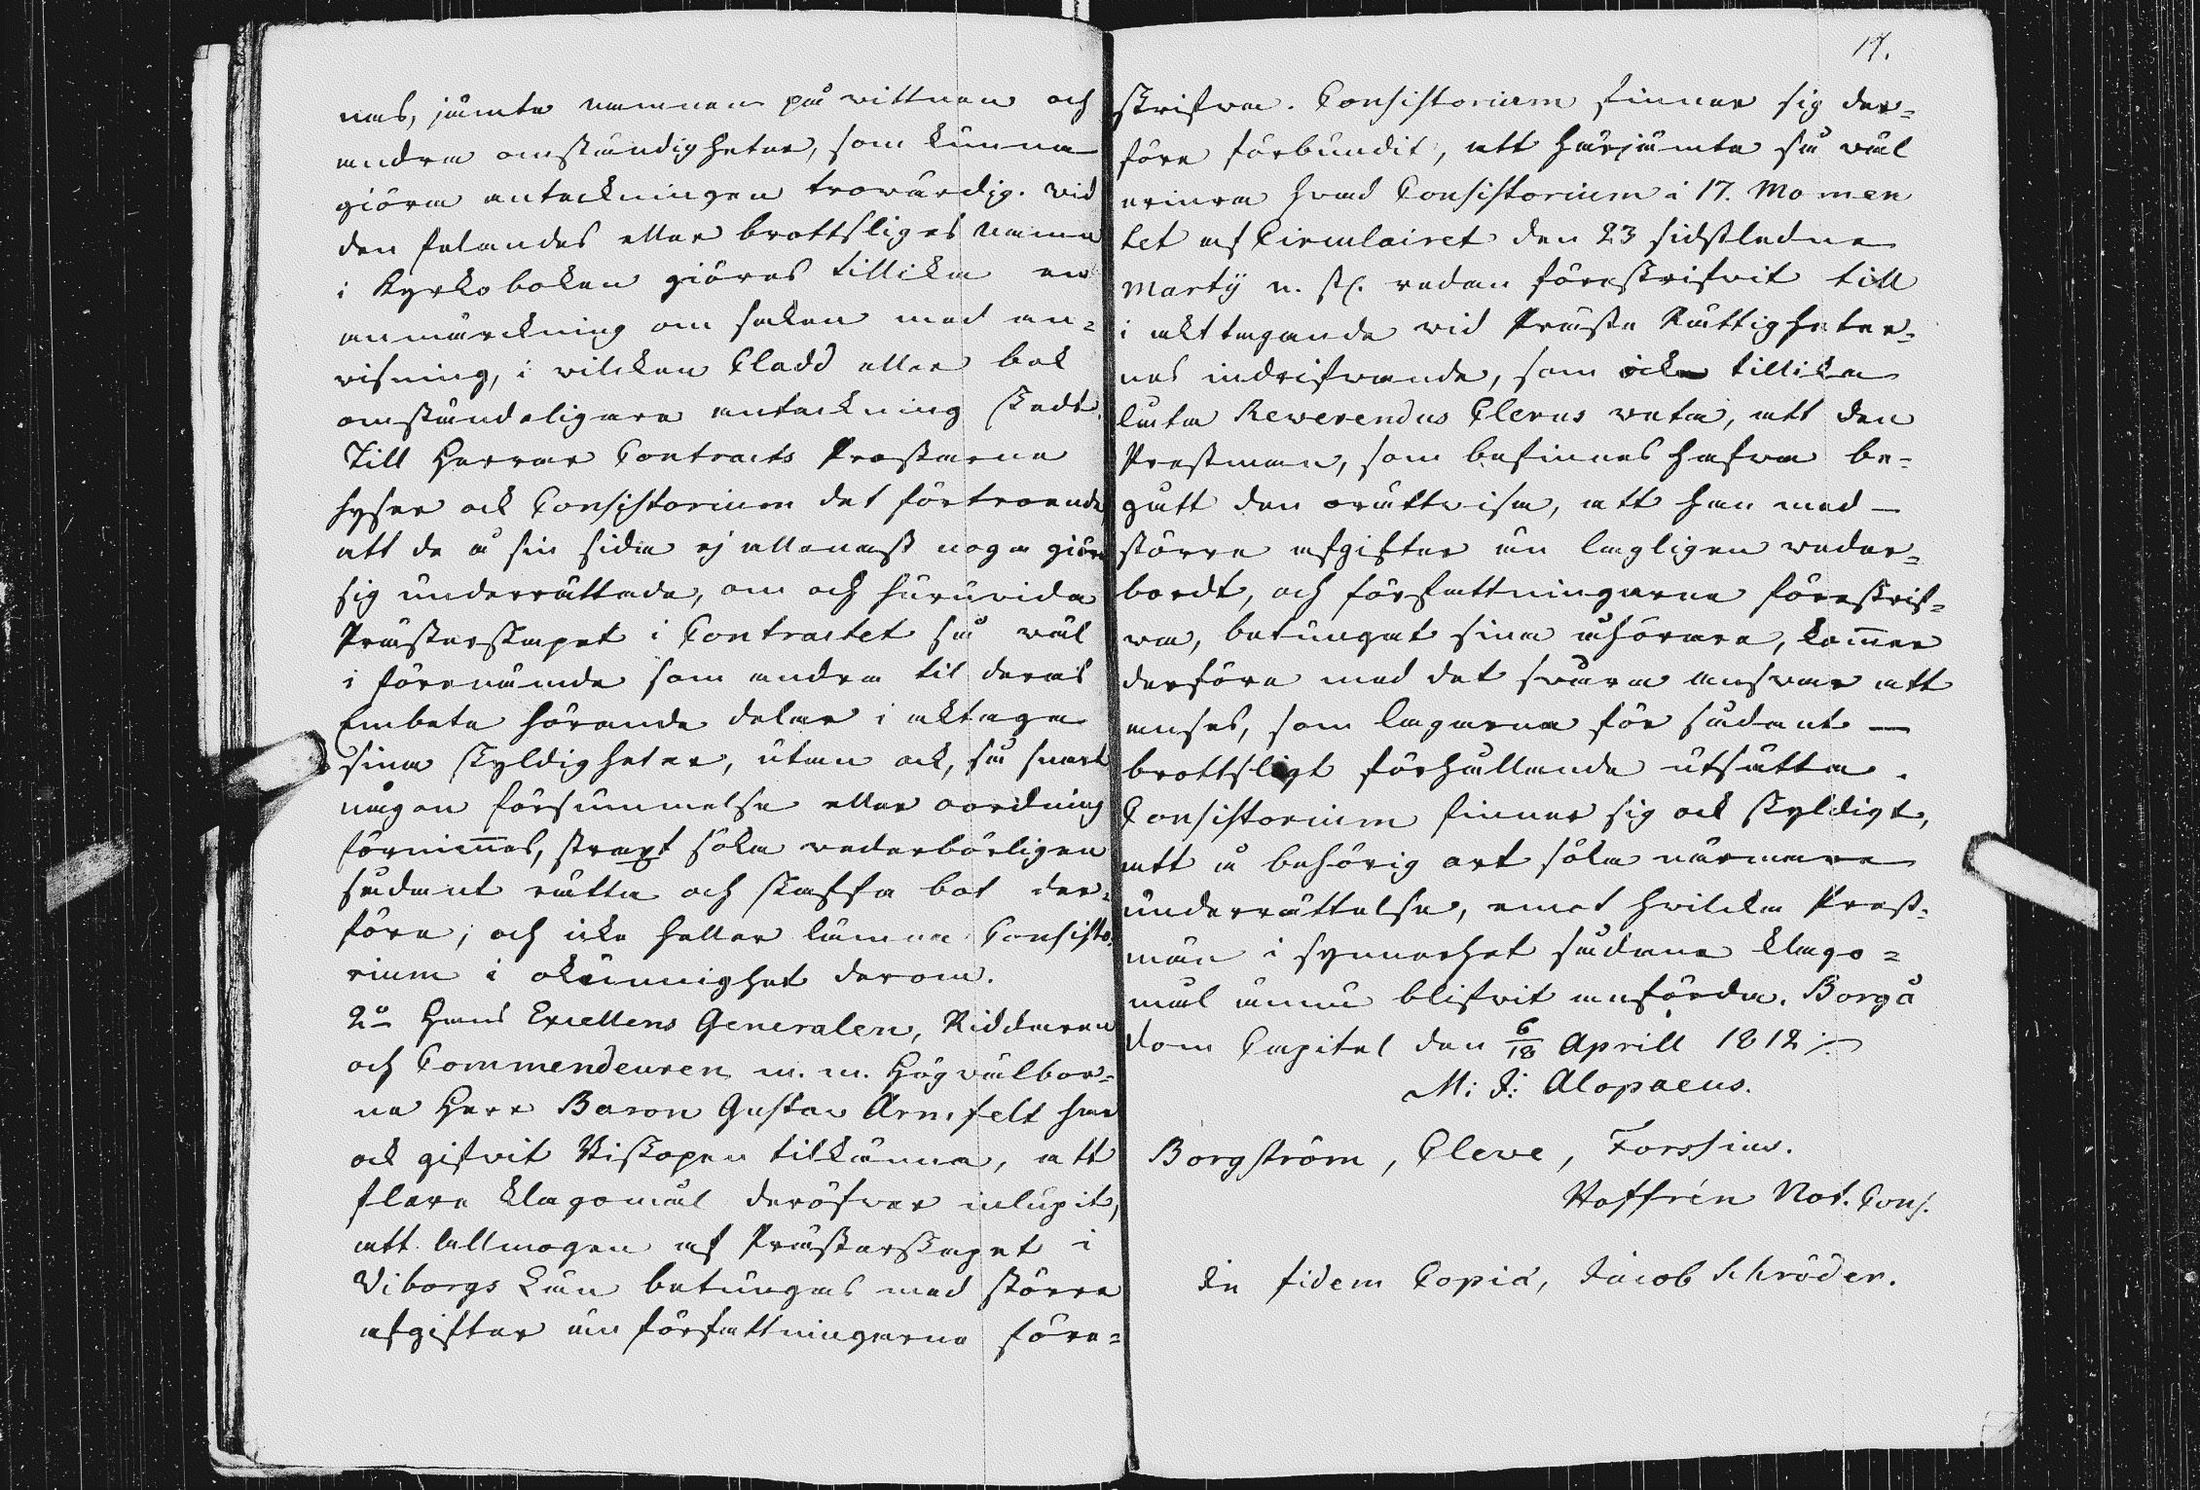 nas, jämte namnen på vittnen och
andra omständigheter, som kunna
giöra anteckningen trovärdig. vid
den felandes eller brottsliges namn
i Kyrkoboken giöres tillika en
anmärckning om saken med an=
visning, i vilcken Cladd eller bok
omständeligare anteckning skedt.
Till Herrar Contracts Prostarne
hyser ock Consistorium det förtroende,
att de å sin sida ej allenast noga giöra
sig underrättade, om och huruvida
Prästerskapet i Contractet så väl
i förenämde som andra til deras
Embete hörande delar i akttaga
sina skyldigheter, utan ock, så snart
någon försummelse eller oordning
förnim̅es, straxt söka vederbörligen
sådant rätta och skaffa bot der=
före; och icke heller lämna Consisto=
rium i okunnighet derom.
2o Hans Excellens Generalen, Riddaren
och Commendeuren m. m. Högvälbor=
ne Herr Baron Gustav Armfelt har
ock gifvit Biskopen tilkänna, att
flere klagomål deröfver inlupit,
att allmogen af Prästerskapet i
Viborgs Län betungas med större
afgifter än författningarna före=
17.
skrifva. Consistorium finner sig der=
före förbundit, att härjämte så väl
erinra hvad Consistorium i 17. Momen
tet af Circulairet den 23 sidstledne
Martÿ n. st. redan föreskrifvit till
i akttagande vid Präste Rättigheter=
nas indrifvande, som ock tillika
låta Reverendus Clerus veta, att den
Prestman, som befinnes hafva be=
gått den orättvisa, att han med
större afgifter än lagligen veder=
bordt, och författningarna föreskrif=
va, betungat sina åhörare, kom̅er
derföre med det svåra ansvar att
anses, som lagarna för sådant
brottsligt förhållande utsätta.
Consistorium finner sig ock skyldigt,
att å behörig ort söka närmare
underrättelse, emot hvilcka Prest=
män i synnerhet sådana klago=
mål ännu blifvit anförda. Borgå
Dom Capitel den 6/18 Aprill 1812 ./.
M: J: Alopaeus.
Borgström, Cleve, Forssius.
Hoffrén Not. Cons.
In fidem Copiæ, Jacob Schröder.